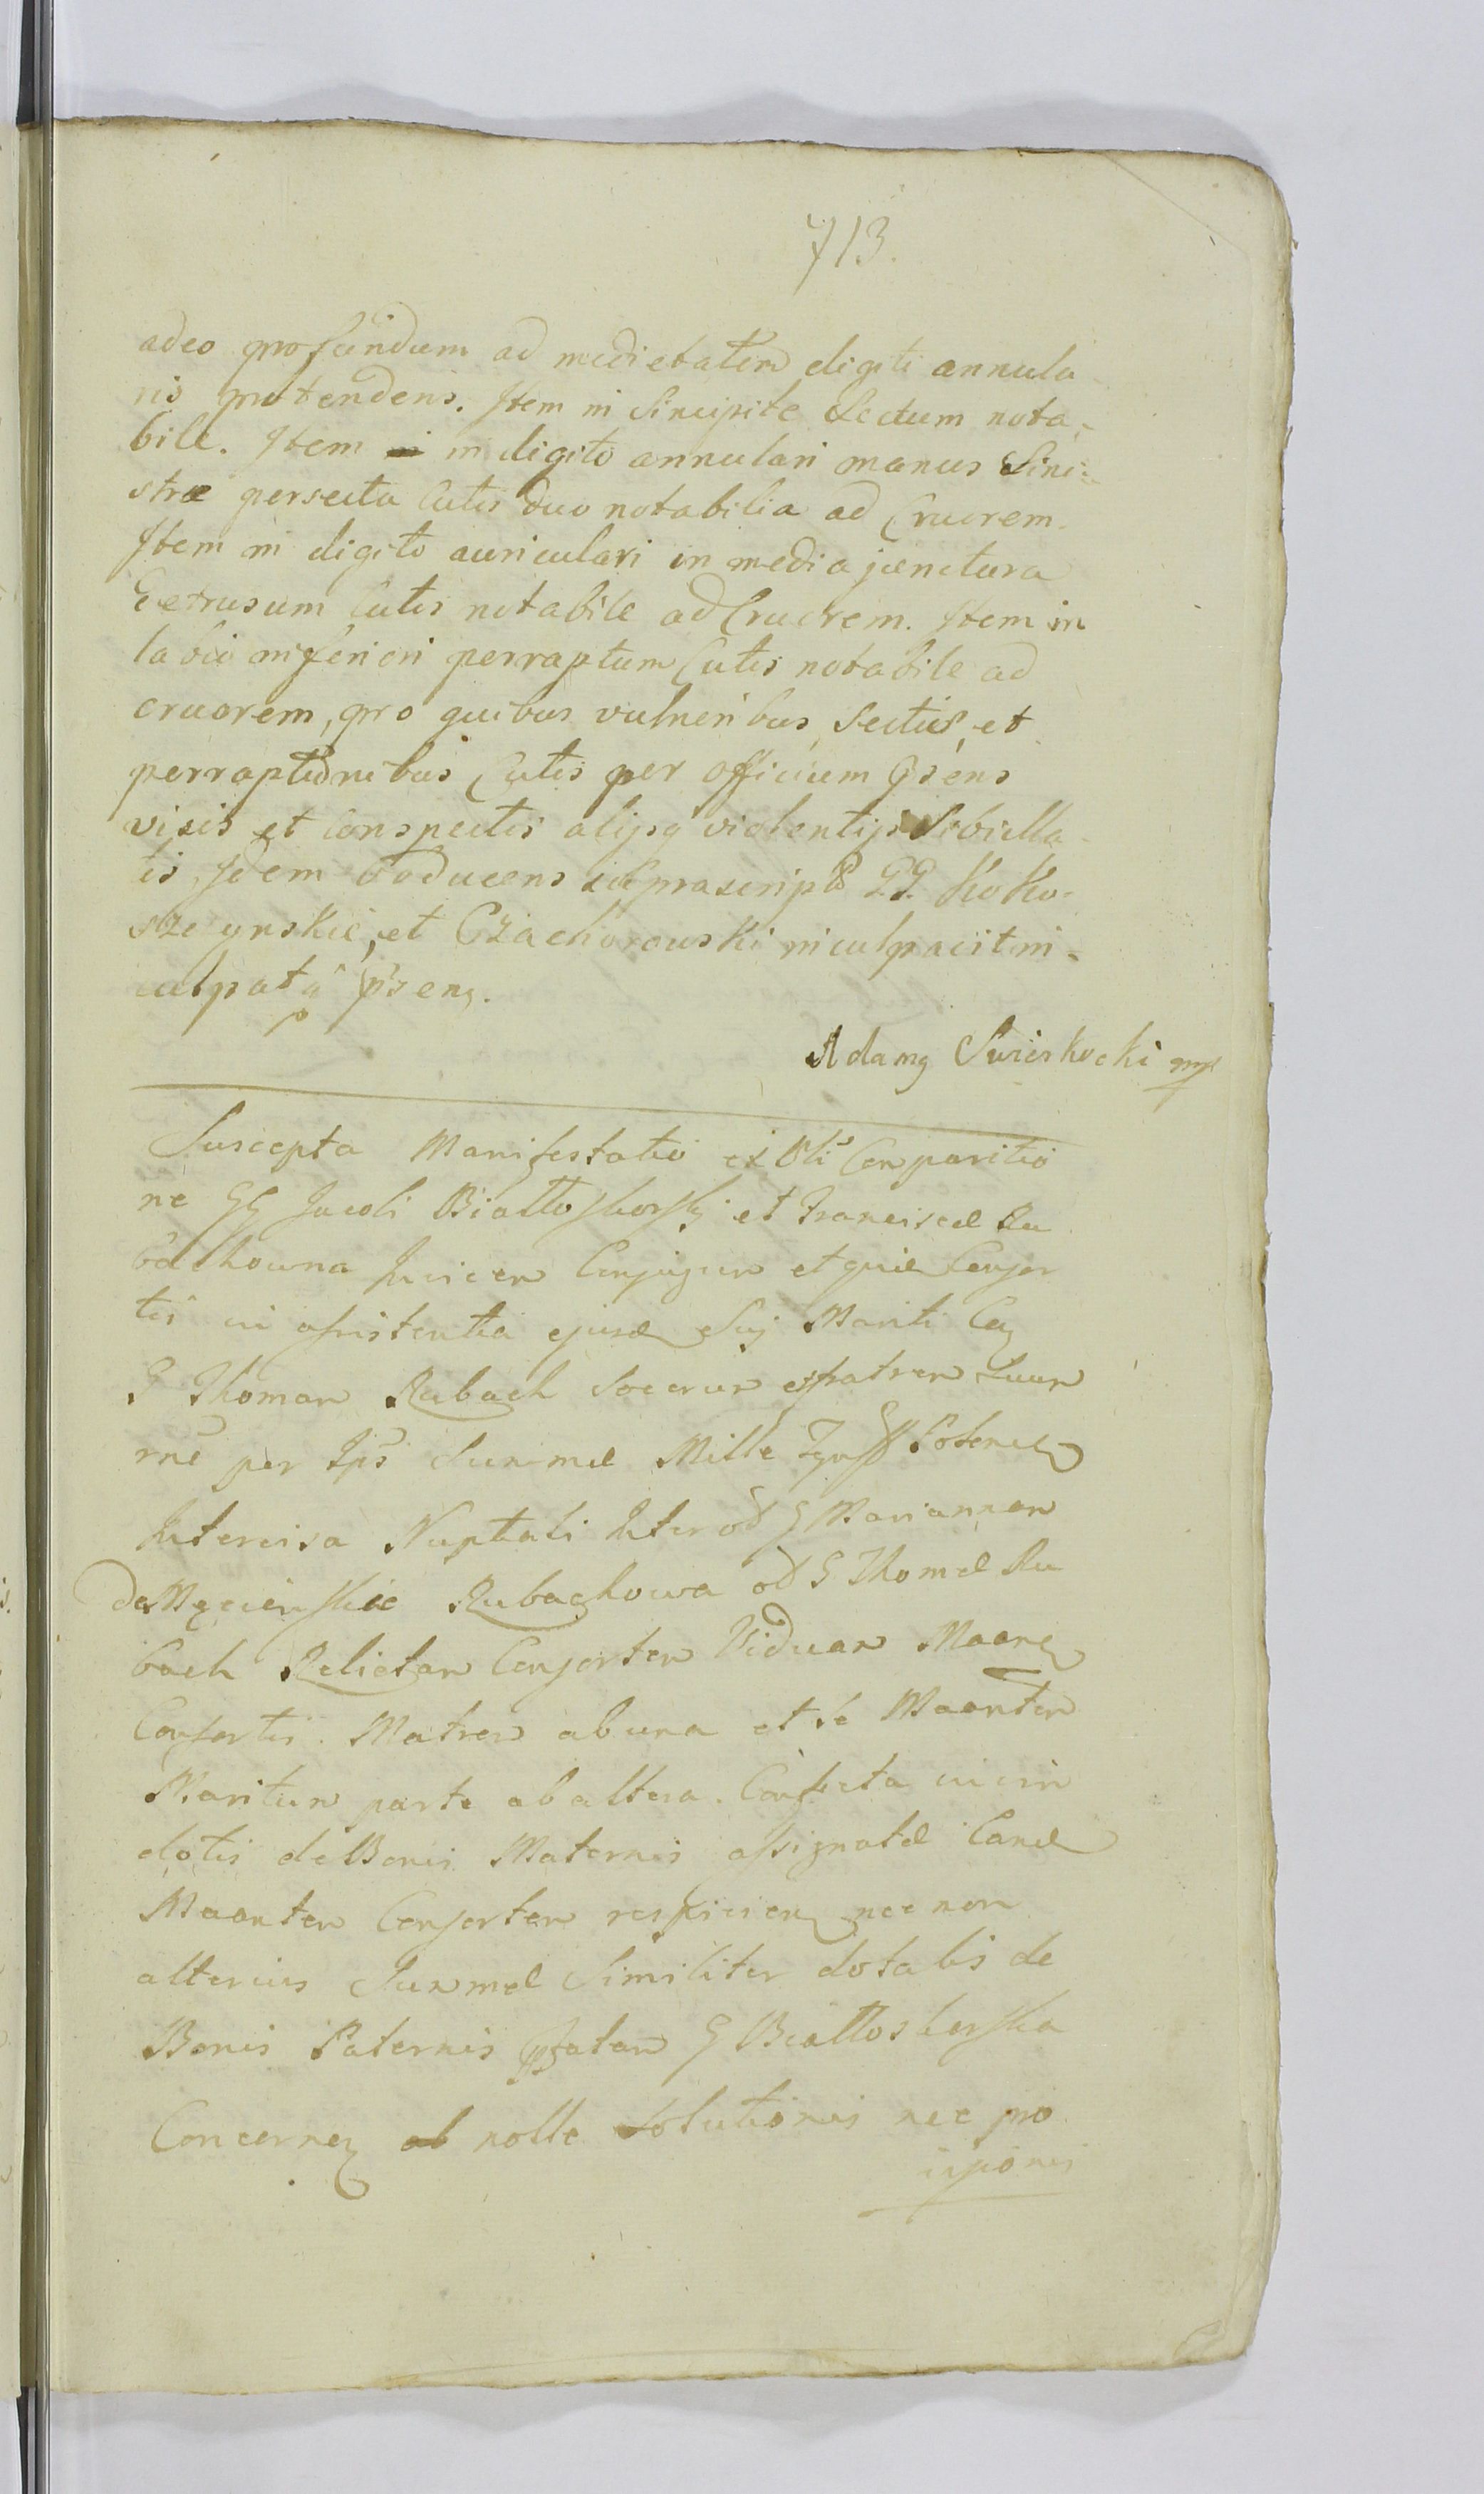 713.
adeo profundum ad medietatem digiti annula
ris protendens. Item in Sincipite Sectum nota-
bile. Item in digito annulari manus Sini-
stræ persecta Cutis duo notabilia ad Cruorem.
Item in digito auriculari in media junctura
Detrusum Cutis notabile ad Cruorem. Item in
labio inferiori perraptum Cutis notabile ad
cruorem, pro quibus vulneribus, Sectis, et
perraptionibus Cutis per Officium Psens
visis et conspectis alijsq violentijs Sibi illa
tis, Idem Obducens supra script GG. Koko-
szczynskie, et Czachorowski inculpavit in-
culpatq psens.
Adamq Swierkocki mp
Suscepta Manifestatio ex Obli Comparitio
ne GG Jacobi Białłoskorski et Franciscæ Ru
bachowna Invicem Conjugum et quidem Consor
tis in assistentia ejusd Sui Mariti Cog
G Thomam Rubach Socerum et patrem Suum
rne per Ips Summæ Mille Tynff Potencz
Intercisa Nuptiali Inter G Mariannam
de Męcinskie Rubachowa G Thomæ Ru
bach Relictam Consortem Viduam Maane
Consortis Matrem ab una et se Maantem
Maritum parte ab altera. Confecta vicem
dotis de Bonis Maternis assignatæ Candem
Maantem Consortem respicien nec non
alterius Summæ Similiter dotalis de
Bonis Paternis pfatam G Białłoskorska
Concernen ob nolle Solutionis nec pro